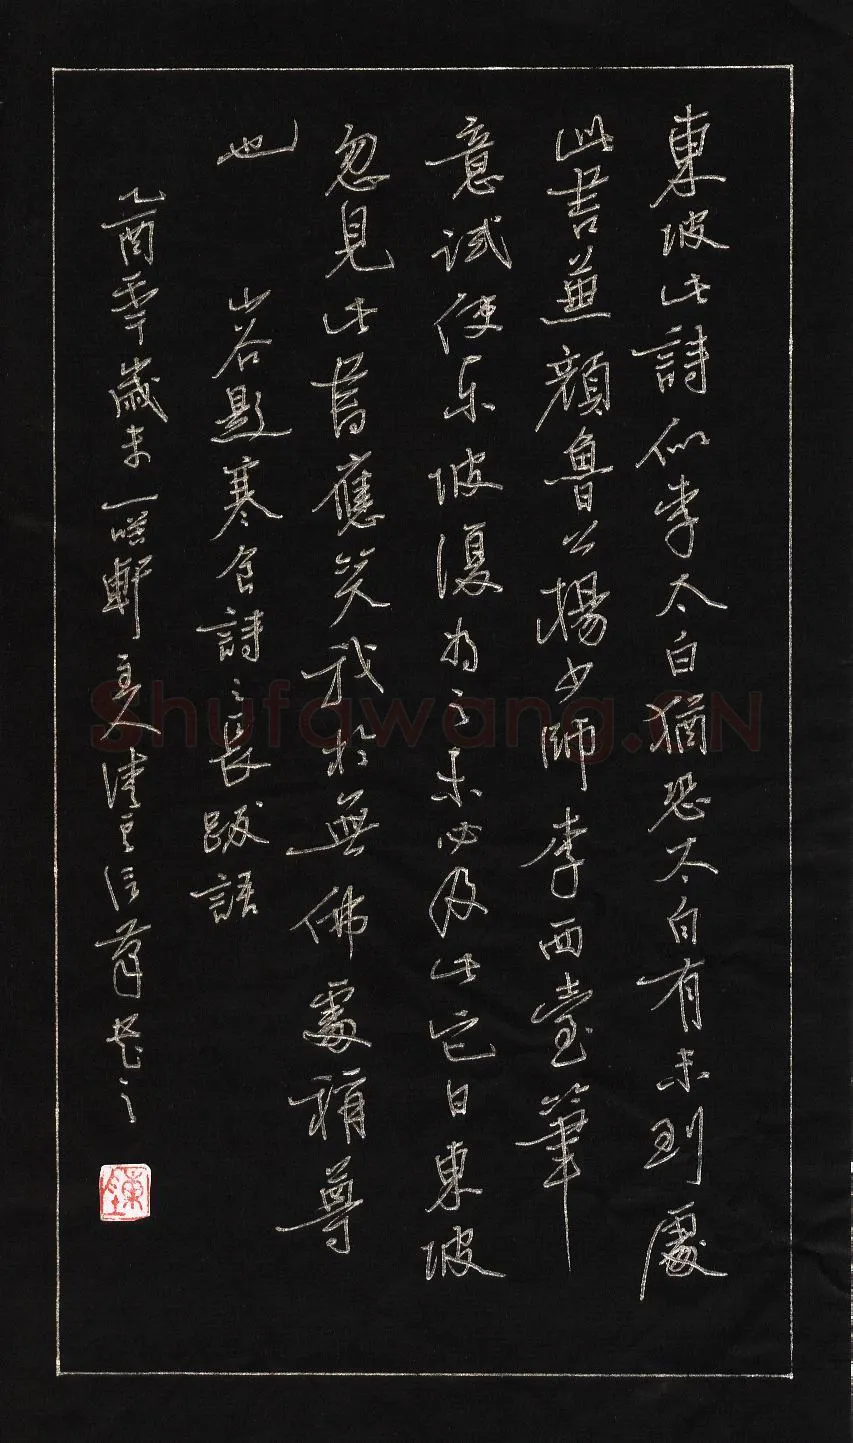 東坡此詩似李太白猶恐太白有未到處
此書兼顔魯公楊少師李西臺筆
意試使东坡復为之未必及此它日東坡
忽見此書應笑我於無佛處稱尊
也
山谷題寒食詩之長跋語
乙酉零歲末一咲軒主人
Shufawang.CN